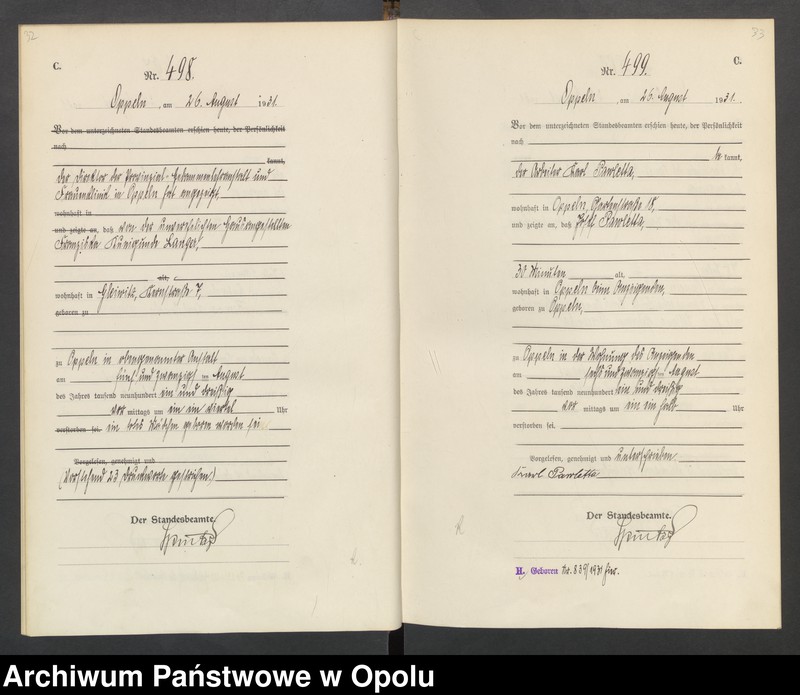 32
C.
Nr. 498.
Oppeln, am 26. August 1931.
Vor dem unterzeichneten Standesbeamten erschien heute, der Persönlichkeit
nach
kannt,
der Direktor der Provinzial-Hebammenlehranstalt und
Frauenklinik in Oppeln hat angezeigt,
wohnhaft in
und zeigte an, daß von der unverehelichten Hausangestellten
Franziska Kunigunde Langer,
alt,
wohnhaft in Gleiwitz, 7,
geboren zu
zu Oppeln in obengenannter Anstalt
am fünf und zwanzigsten August
des Jahres tausend neunhundert ein und dreißig
vor mittags um ein ein viertel Uhr
verstorben sei. ein totes Mädchen geboren worden sei
Vorgelesen, genehmigt und
(Vorstehend 23 Druckworte gestrichen.)
Der Standesbeamte.
33
C.
Nr. 499.
Oppeln, am 26. August 1931.
Vor dem unterzeichneten Standesbeamten erschien heute, der Persönlichkeit
nach
be kannt,
der Arbeiter Karl Pawletta,
wohnhaft in Oppeln, 18,
und zeigte an, daß Pawletta,
30 Minuten alt,
wohnhaft in Oppeln beim Anzeigenden,
geboren zu Oppeln,
zu Oppeln in der Wohnung des Anzeigenden
am sechs und zwanzigsten August
des Jahres tausend neunhundert ein und dreißig
vor mittags um ein ein halb Uhr
verstorben sei.
Vorgelesen, genehmigt und unterschrieben
Karl Pawletta
Der Standesbeamte.
H. Geboren No. 839/1931 hier.
Archiwum Państwowe w Opolu